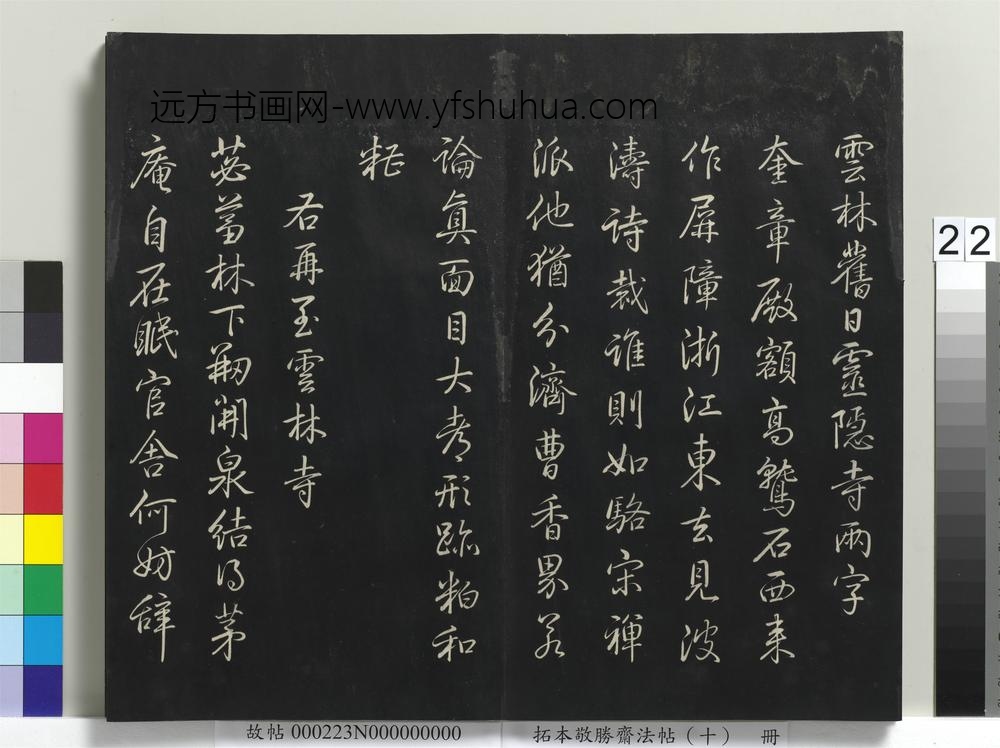 远方书画网-www.yfshuhua.com
雲林舊日靈隱寺兩字
奎章殿額高鷲石西來
作屏障浙江東去見波
濤詩裁誰則如駱宋禪
派他猶分濟曹香界若
論眞面目大都形跡粕和
糟
右再至雲林寺
苾蒭林下剏開泉結得茅
庵自在眠官舍何妨辭
22
故帖 000223N000000000
拓本敬勝齋法帖（十） 冊